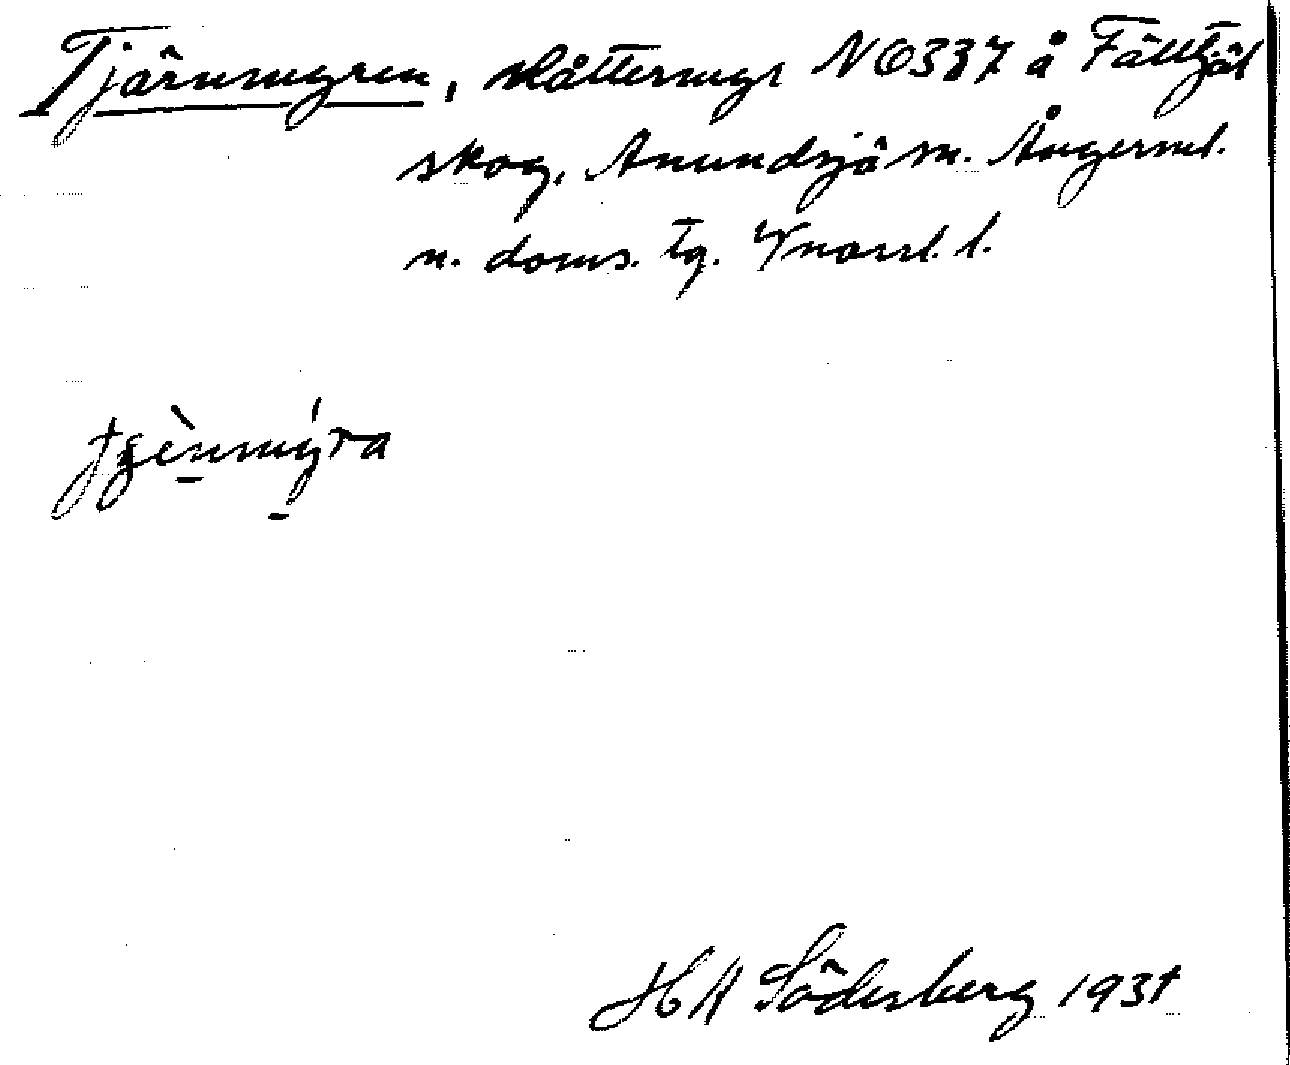 Tjärnmyren, slåttermyr NO337 å Fälltjäl
skog, Anundsjö sn. Ångerml.
n. doms. tg. Vnorrl. l.
HA Söderberg 1931